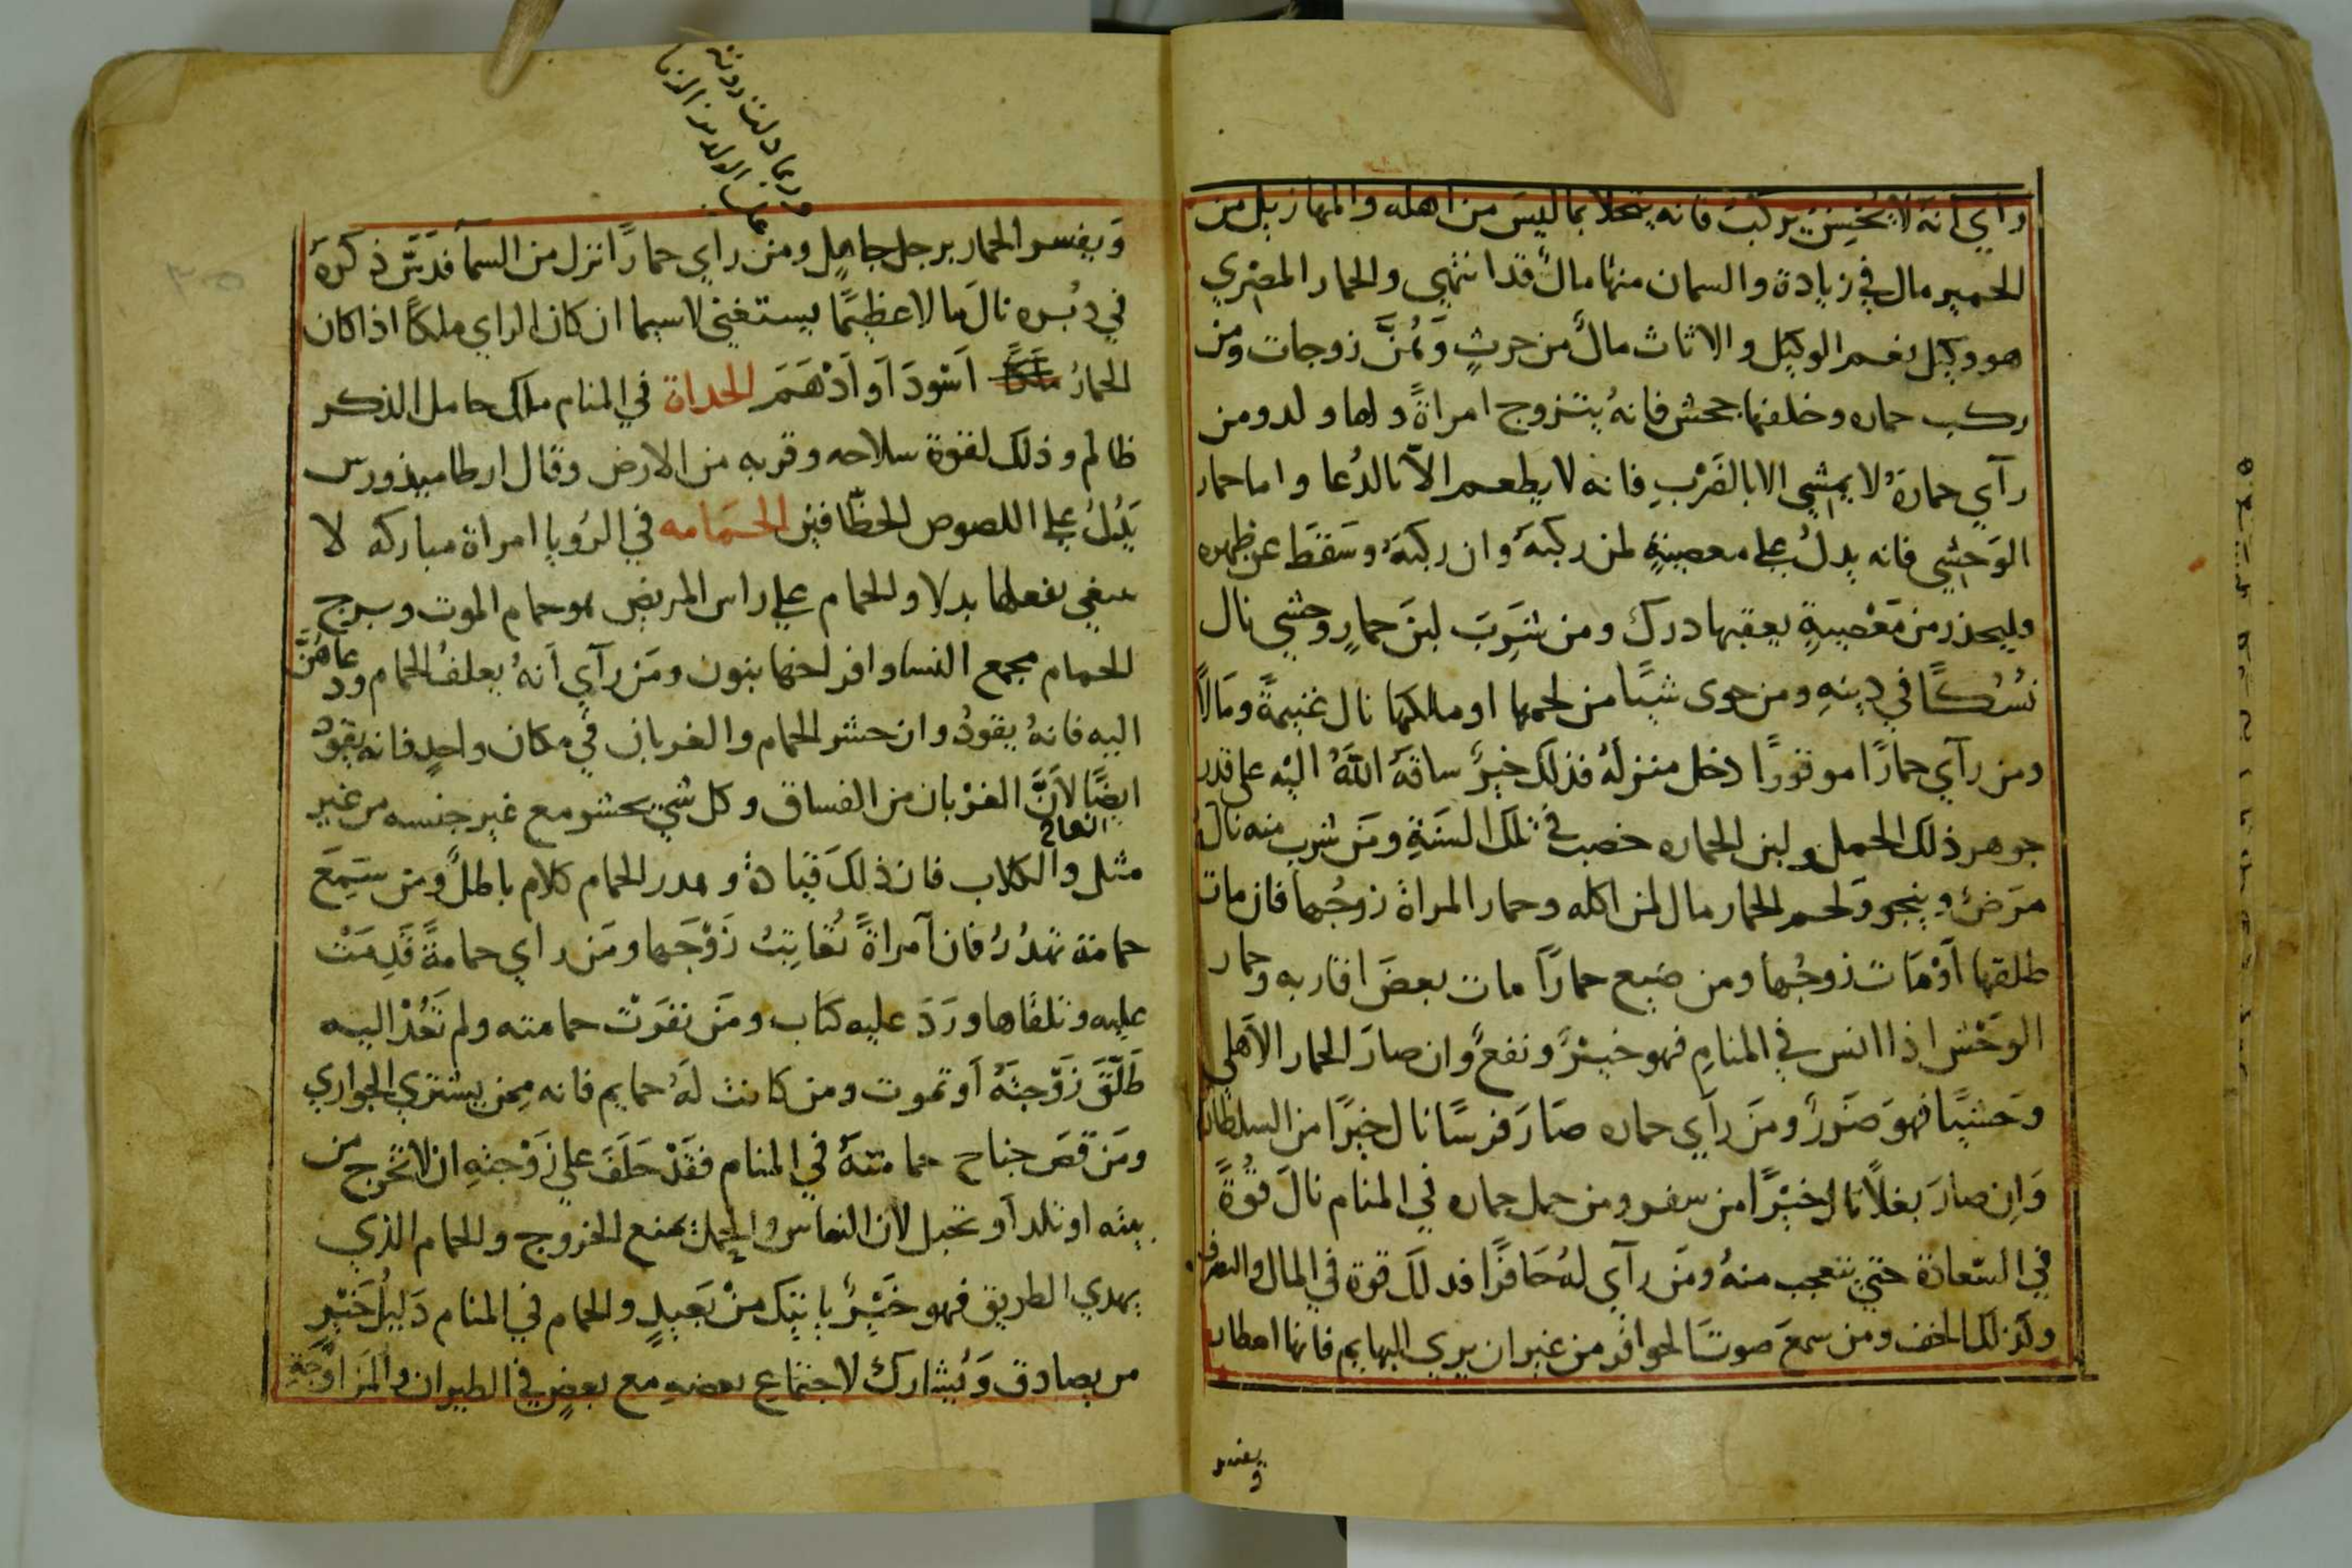 رآي انه لا يُحْسِنُ يركب فانه يتحلا بما ليس من اهله والمهازيل من
الحمير مال في زيادة والسمان منها مالٌ قد انتهي والحمار المصْري
هو وكيل نعم الوكيل والاناث مالٌ من حرثٍ وهُنَّ زوجات ومن
ركب حماره وخلفها جحش فانهُ يتزوج امراةً ولها ولد ومن
رآي حمارهُ لا يمشي الا بالضَرْبِ فانه لا يطعم الا بالدُعا واما حمار
الوَحشي فانه يدلُ علي معصيةٍ لمن ركبهُ وان ركبهُ وسَقَطَ عن ظهره
وليحذر من مَعْصيةٍ يعقبها درك ومن شَرِبَ لبنَ حمارٍ وحشي نال
نُسُكًا في دينهِ ومن حوى شيًا من لحمها او ملكها نال غنيمةً ومَالاً
ومن رآي حمارًا موقورًا دخل منزلهُ فذلك خيرٌ ساقهُ اللهُ اليه على قدر
جوهر ذلك الحمل ولبن الحماره خصب في تلك السَنَةِ ومَن شرب منه نال
مَرَضٌ وينجو ولحم الحمار مال لمن اكله وحمار المراة زوجُها فان مات
طلقها أوْ مَات زوجُها ومن ضيع حمارًا مات بعضَ اقاربه وحمار
الوَحْش اذا انس في المنامِ فهو خيرٌ ونفعٌ وان صارَ الحمار الاهلي
وَحشيًا فهوَ ضَررٌ ومَن رآي حماره صَارَ فرسًا نال خيرًا من السلطان
وَان صارَ بغلاً نال خيْرًا من سفر ومن حمل حماره في المنام نالَ قُوةً
في السَعادة حتي يتعجب منهُ ومَن رآي لهُ حَافرًا فدلَك قوة في المال والتصرف
وكذلك الخف ومن سمعَ صوتَ الحوافر من غير ان يري البهايم فانها امطار
ويفسر
وربما دلت رويته
علي الولد من الزنا
وَيفسر الحمار برجل جاهل ومن راي حمارًا نزل من السمآ فدَسَّ ذكرَهُ
في دبُره نالَ مالا عظيمًا يستغني لاسيما ان كان الراي ملكًا اذا كان
الحمارُ اَسْودَ اَو اَدْهَمَ الحداة في المنام ملك خامل الذكر
ظالم وذلك لقوة سلاحه وقربه من الارض وقال ارطاميذورس
يَدُلُ علي اللصوص الخطّافين الحَمَامه في الرُويا امراة مباركه لا
يبغي بفعلها بدلا والحمام علي راس المريض هو حمام الموت وبرج
الحمام مجمع النسا وافراخها بنون ومَن رآي اَنهُ يعلفُ الحمام ودعاهُنَّ
اليه فانهُ يقودُ وان حشر الحمام والغربان في مكان واحدٍ فانه يقودُ
ايضًا لاَنَّ الغرْبان من الفساق وكل شي يحشر مع غير جنسه من غير
مثل النعاج والكلاب فان ذلكَ قيادةٌ وهدر الحمام كلام باطلٌ ومن سَمِعَ
حمامة تهدُرُ فان اَمراةً تُعَاتِبُ زَوْجَها ومَن راي حمامةً قَدِمَتْ
عليه وتلقاها ورَدَ عليه كتاب ومَن نفرَتْ حمامته ولم تَعُدْ اليه
طَلّقَ زَوْجتَهُ اَو تموت ومن كانت لَهُ حمايم فانه مِمن يشتري الجواري
ومَن قَصَ جناح حمامتهُ في المنام فقَدْ حَلَفَ علي زَوْجتهِ ان لا تخرج من
بيته او تلد اَو تحبل لان النفاس والحمل يمنع الخروج والحمام الذي
يهدي الطريق فهو خَيْرٌ ياتيك منْ بَعيدٍ والحمام في المنام دَليلُ خَيْرٍ
من يصادق وَيُشارك لاجتماع بعضهِ مع بعضٍ في الطيران والمَزاوَجةِ